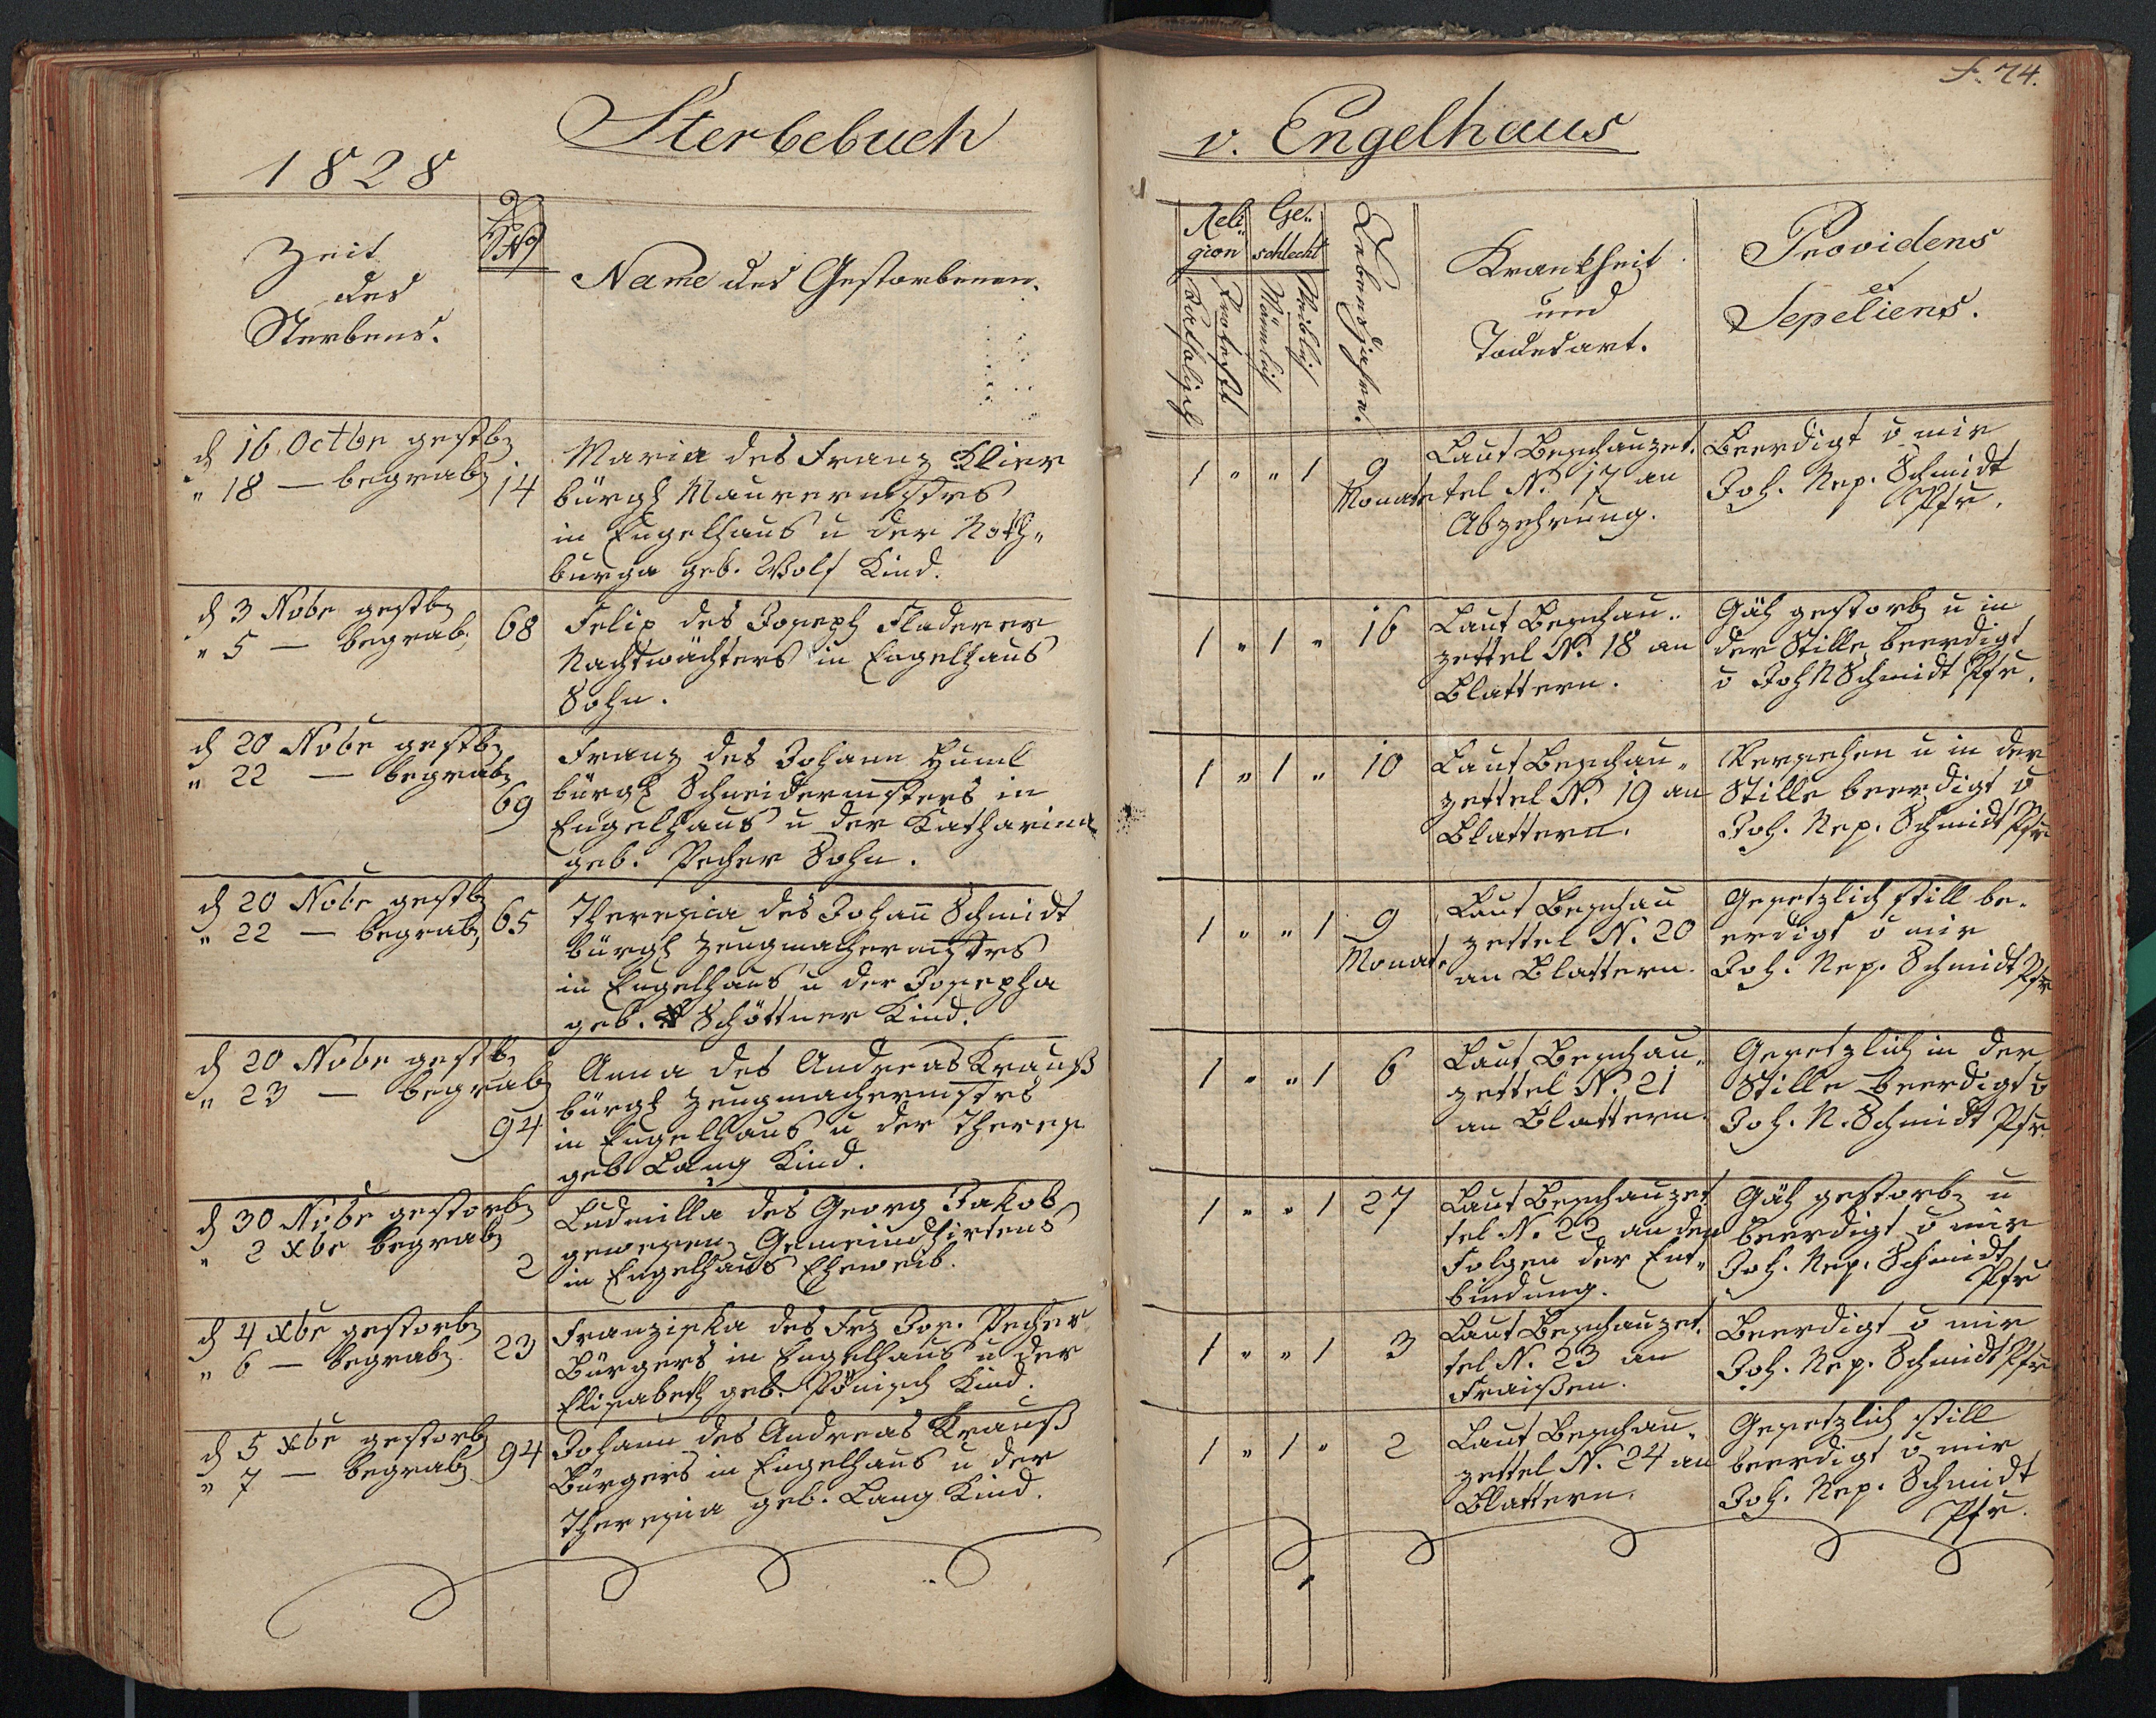 f. 74.
Sterbebuch
v. Engelhaus
1828
Zeit
des
Sterbens.
N°
Name des Gestorbenen.
Reli-
gion
Katholisch
Protest
Ge-
schlecht
Männlich
Weiblich
Lebensjahre.
Krankheit
und
Todesart.
Providens
et
Sepeliens.
d 16 Octbr gestb
" 18 — begrab
14
Maria des Franz Klier
bürgl Maurermstrs
in Engelhaus u der Noth-
burga geb. Wolf Kind.
1 " " 1
9
Monate
Laut Beschauzet-
tel N. 17 an
Abzehrung.
Beerdigt v mir
Joh. Nep. Schmidt
Pfr.
d 3 Nobr gestb
" 5 — begrab.
68
Felix des Joseph Fladerer
Nachtwächters in Engelhaus
Sohn.
1 " 1 "
16
Laut Beschau-
zettel N. 18 an
Blattern.
Gäh gestorb u in
der Stille beerdigt
v Joh N Schmidt Pfr.
d 20 Nobr gestb
" 22 — begrab
69
Franz des Johann Huml
bürgl Schneidermsters in
Engelhaus u der Katharina
geb. Pecher Sohn.
1 " 1 "
10
Laut Beschau-
zettel N. 19 an
Blattern.
Versehen u in der
Stille beerdigt v
Joh. Nep. Schmidt Pfr
d 20 Nobr gestb
" 22 — begrab
65
Theresia des Johann Schmidt
bürgl Zeugmachermstrs
in Engelhaus u der Josepha
geb. Schöttner Kind.
1 " " 1
9
Monat
Laut Beschau
zettel N. 20
an Blattern.
Gesetzlich still be-
erdigt v mir
Joh. Nep. Schmidt Pfr
d 20 Nobr gestb
" 23 — begrab
94
Anna des Andreas Krauß
bürgl Zeugmachermstrs
in Engelhaus u der Theres.
geb Lang Kind.
1 " " 1
6
Laut Beschau-
zettel N. 21
an Blattern.
Gesetzlich in der
Stille beerdigt v
Joh. N. Schmidt Pfr.
d 30 Nobr gestorb
" 2 Xbr begrab
2
Ludmilla des Georg Jakob
gewesen Gemeindhirtens
in Engelhaus Eheweib.
1 " " 1
27
Laut Beschauzet
tel N. 22 an den
Folgen der Ent-
bindung.
Gäh gestorb u
beerdigt v mir
Joh. Nep. Schmidt
Pfr
d 4 Xbr gestorb
" 6 — begrab
23
Franziska des Frz Jos. Pecher
Bürgers in Engelhaus u der
Elisabeth geb. Pönisch Kind.
1 " " 1
3
Laut Beschauzet-
tel N. 23 an
Fraißen.
Beerdigt v mir
Joh. Nep. Schmidt Pfr
d 5 Xbr gestorb
" 7 — begrab
94
Johann des Andreas Krauß
Bürgers in Engelhaus u der
Theresia geb. Lang Kind.
1 " 1 "
2
Laut Beschau-
zettel N. 24 an
Blattern.
Gesetzlich still
beerdigt v mir
Joh. Nep. Schmidt
Pfr.